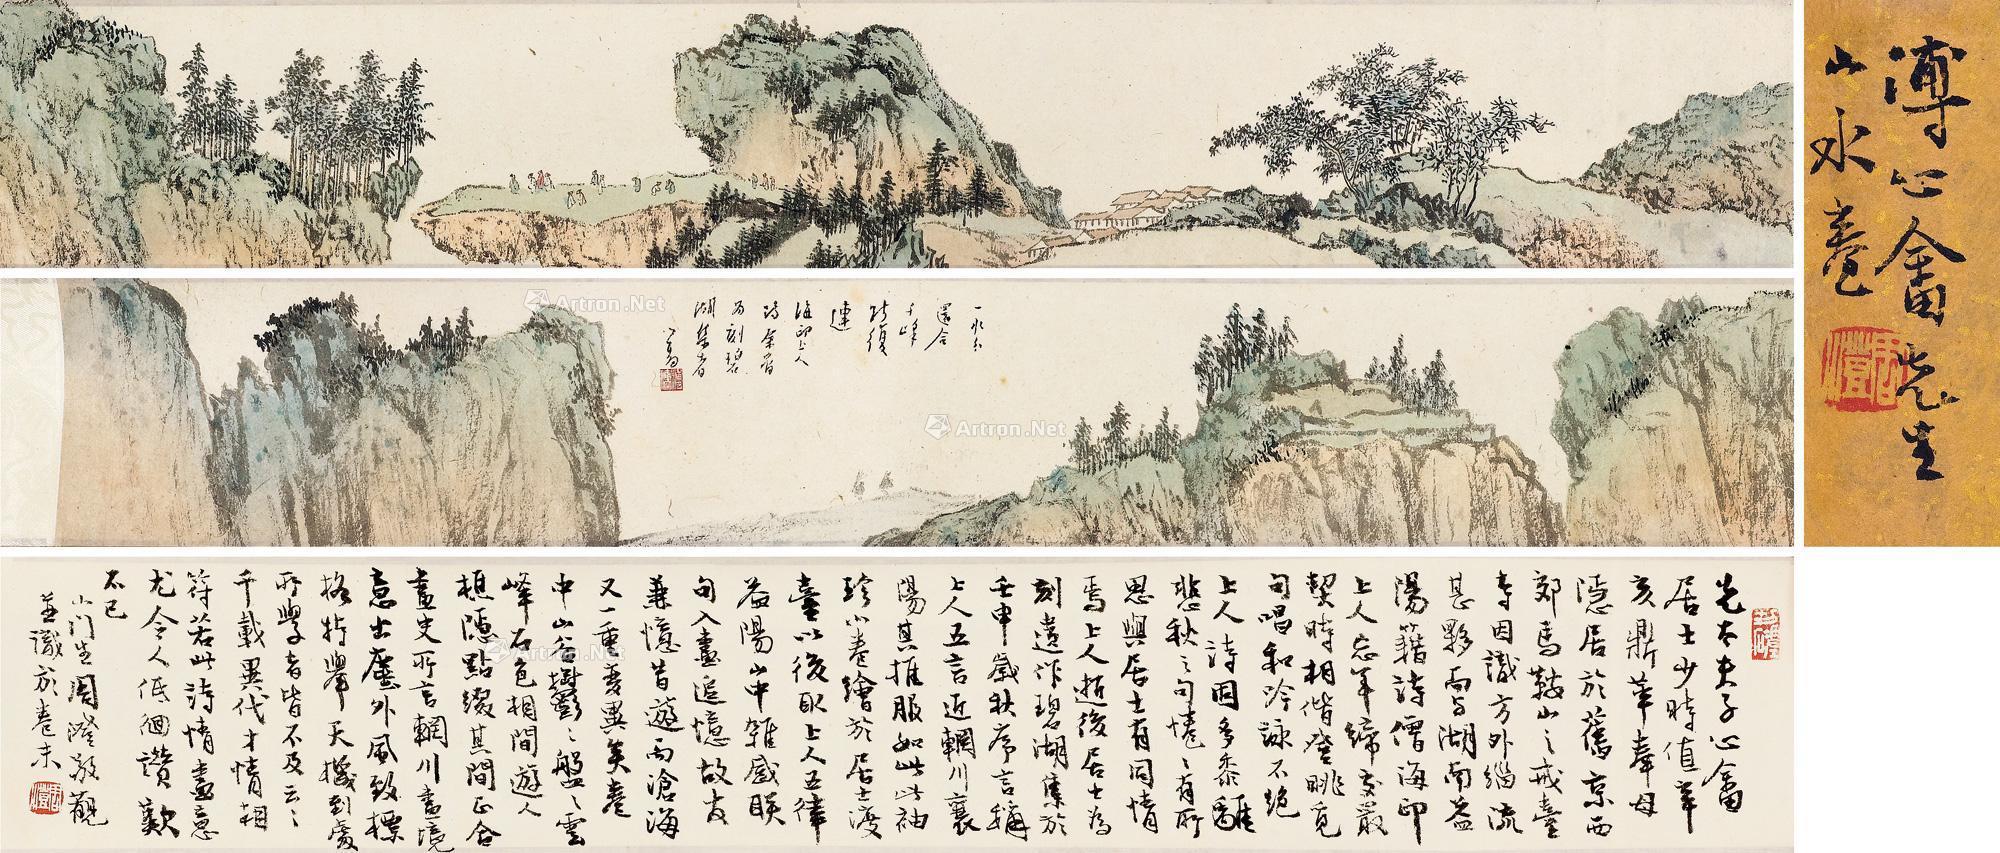 溥心畬先生
山水卷
周澄
一水分
還合
千峰
斷復
連
海印上人
詩余曾
為刻碧
湖集者
心畬
先太夫子心畬
居士少時值辛
亥鼎革奉母
隱居於舊京西
郊馬鞍山之戒臺
寺因識方外緇流
甚夥而與湖南益
陽籍詩僧海印
上人忘年締交最
契時相偕登眺覓
句唱和吟詠不絕
上人詩因多黍離
悲秋之句惓〻有所
思與居士有同情
焉上人逝後居士為
刻遺作碧湖集於
壬申歲秋序言稱
上人五言近輞川襄
陽其推服如此此袖
珍小卷繪於居士渡
臺以後取上人五律
益陽山中雜感聯
句入畫追憶故友
兼憶昔遊而滄海
又一重變異矣卷
中山谷樹鬱〻盤〻雲
峰石色相間遊人
樵隱點綴其間正合
畫史所言輞川畫境
意出塵外風致標
格特舉天機到處
所學者皆不及云〻
千載異代才情相
符若此詩情畫意
尤令人低徊讚歎
不已
小門生周澄敬觀
並識於卷末
周澄
Artron.Net
Artron.Net
Artron.Net
Artron.Net
Artron.Net